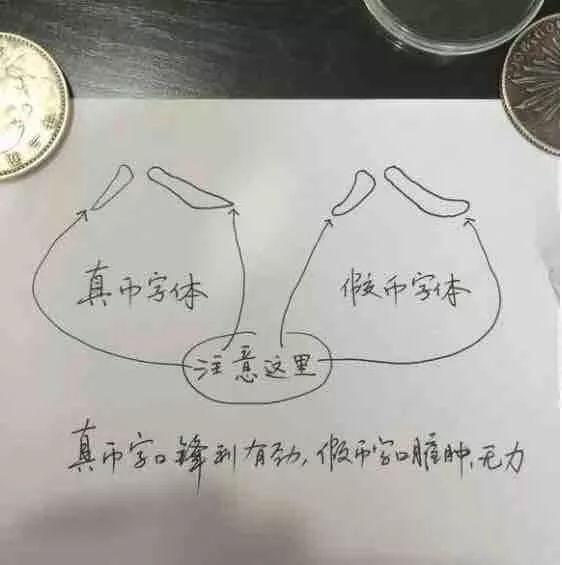 真币字体
假币字体
注意这里
真币字口锋利有劲,假币字口臃肿.无力